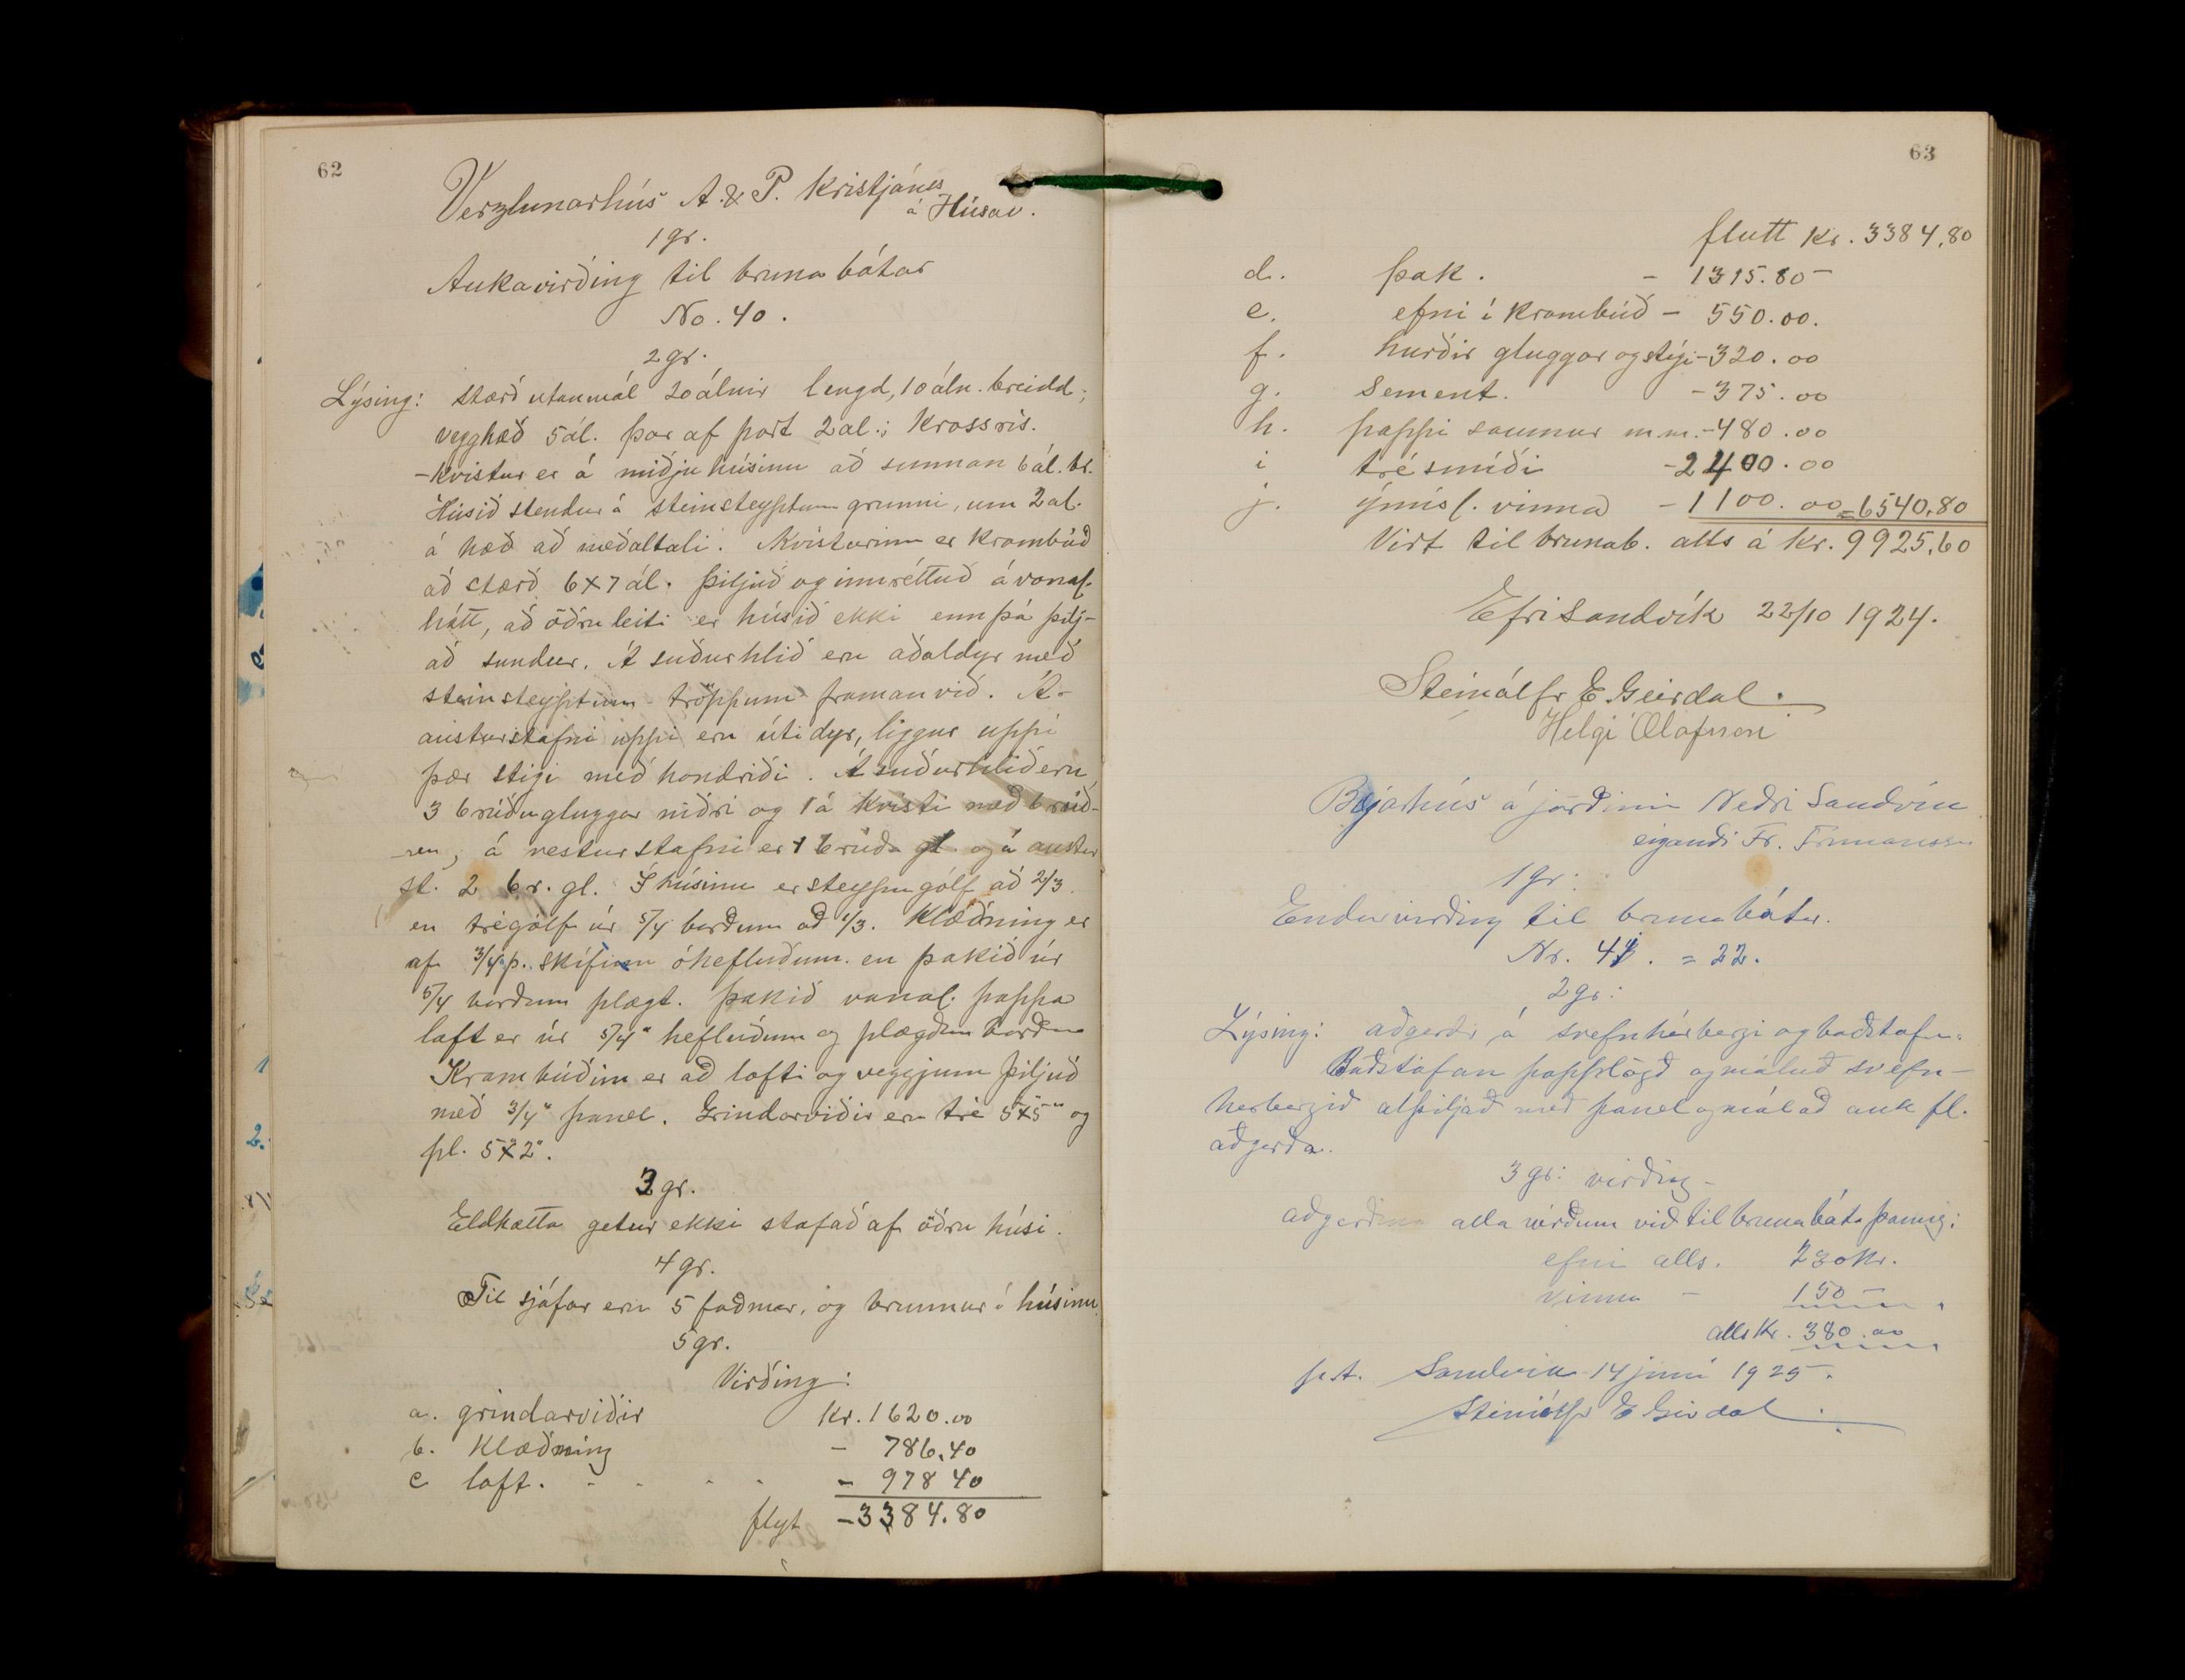 62
Verzlunarhús A. & P. Kristjáns
á Húsav.
1 gr.
Aukavirðing til brunabótar
No. 40.
2 gr.
Lýsing: stærð utanmál 20 álnir lengd, 10 áln. breidd;
vegghæð 5 ál. þar af port 2 al.; Krossris.
-Kvistur er á miðju húsinu að sunnan 6 ál. br.
Húsið stendur á steinsteyptum grunni, um 2 al.
á hæð að meðaltali. Kvisturinn er Krambúð
að stærð 6x7 ál. þiljuð og innréttuð á vanal.
hátt, að öðru leiti er húsið ekki ennþá þilj-
að sundur. Á suðurhlið eru aðaldyr með
steinsteyptum tröppum framanvið. Á-
austurstafni uppi eru útidyr, liggur uppí
þær stigi með handriði. Á suðurhlið eru
3 6 rúðu gluggar niðri og 1 á Kvisti með 6 rúð-
um, á vesturstafni er 1 6 rúða gl og á austur
st. 2 6 r. gl. Í húsinu er steypu gólf að 2/3
en trégólf úr 5/4 borðum að 1/3. Klæðning er
af 3/4" þ. skífum óhefluðum. en þakið úr
5/4 borðum plægt. þakið vanal. pappa
loft er úr 5/4" hefluðum og plægðum borðum
Krambúðin er að lofti og veggjum þiljuð
með 3/4" panel. Grindarviðir eru tré 5"x5" og
pl. 5"x2".
3 gr.
Eldhætta getur ekki stafað af öðru húsi.
4 gr.
Til sjáfar eru 5 faðmar, og brunnur í húsinu
5 gr.
Virðing:
a. grindarviðir Kr. 1620.00
b. Klæðning - 786.40
c loft. - 978 40
flyt -3384.80
63
flutt Kr. 3384,80
d. þak. - 1315.80
e. efni í Krambúð - 550.00.
f. hurðir gluggar og stigi -320.00
g. Sement. -375.00
h. pappi saumur m m. -480.00
i trésmíði -2400.00
j. ýmisl. vinna - 1100.00 = 6540,80
Virt til brunab. alls á Kr. 9925,60
Efri Sandvík 22/10 1924.
Steinólfr E Geirdal.
Helgi Ólafsson
Bæjarhús á jörðinni Neðri Sandvík
eigandi Fr.
1 gr:
Endurvirðing til brunabótar.
Nr. = 22.
2 gr:
Lýsing: aðgerðir á svefnherbergi og baðstofu.
Baðstofan papplögð og máluð svefn-
herbergið alþiljað með panel og málað auk fl.
aðgerða.
3 gr: virðing-
aðgerðina alla virðum við til brunabóta þannig:
efni alls. 230 Kr.
vinna - 150 -
alls Kr. 380.00
p.t. Sandvík 14 júní 1925.
Steinólfr E Geirdal.